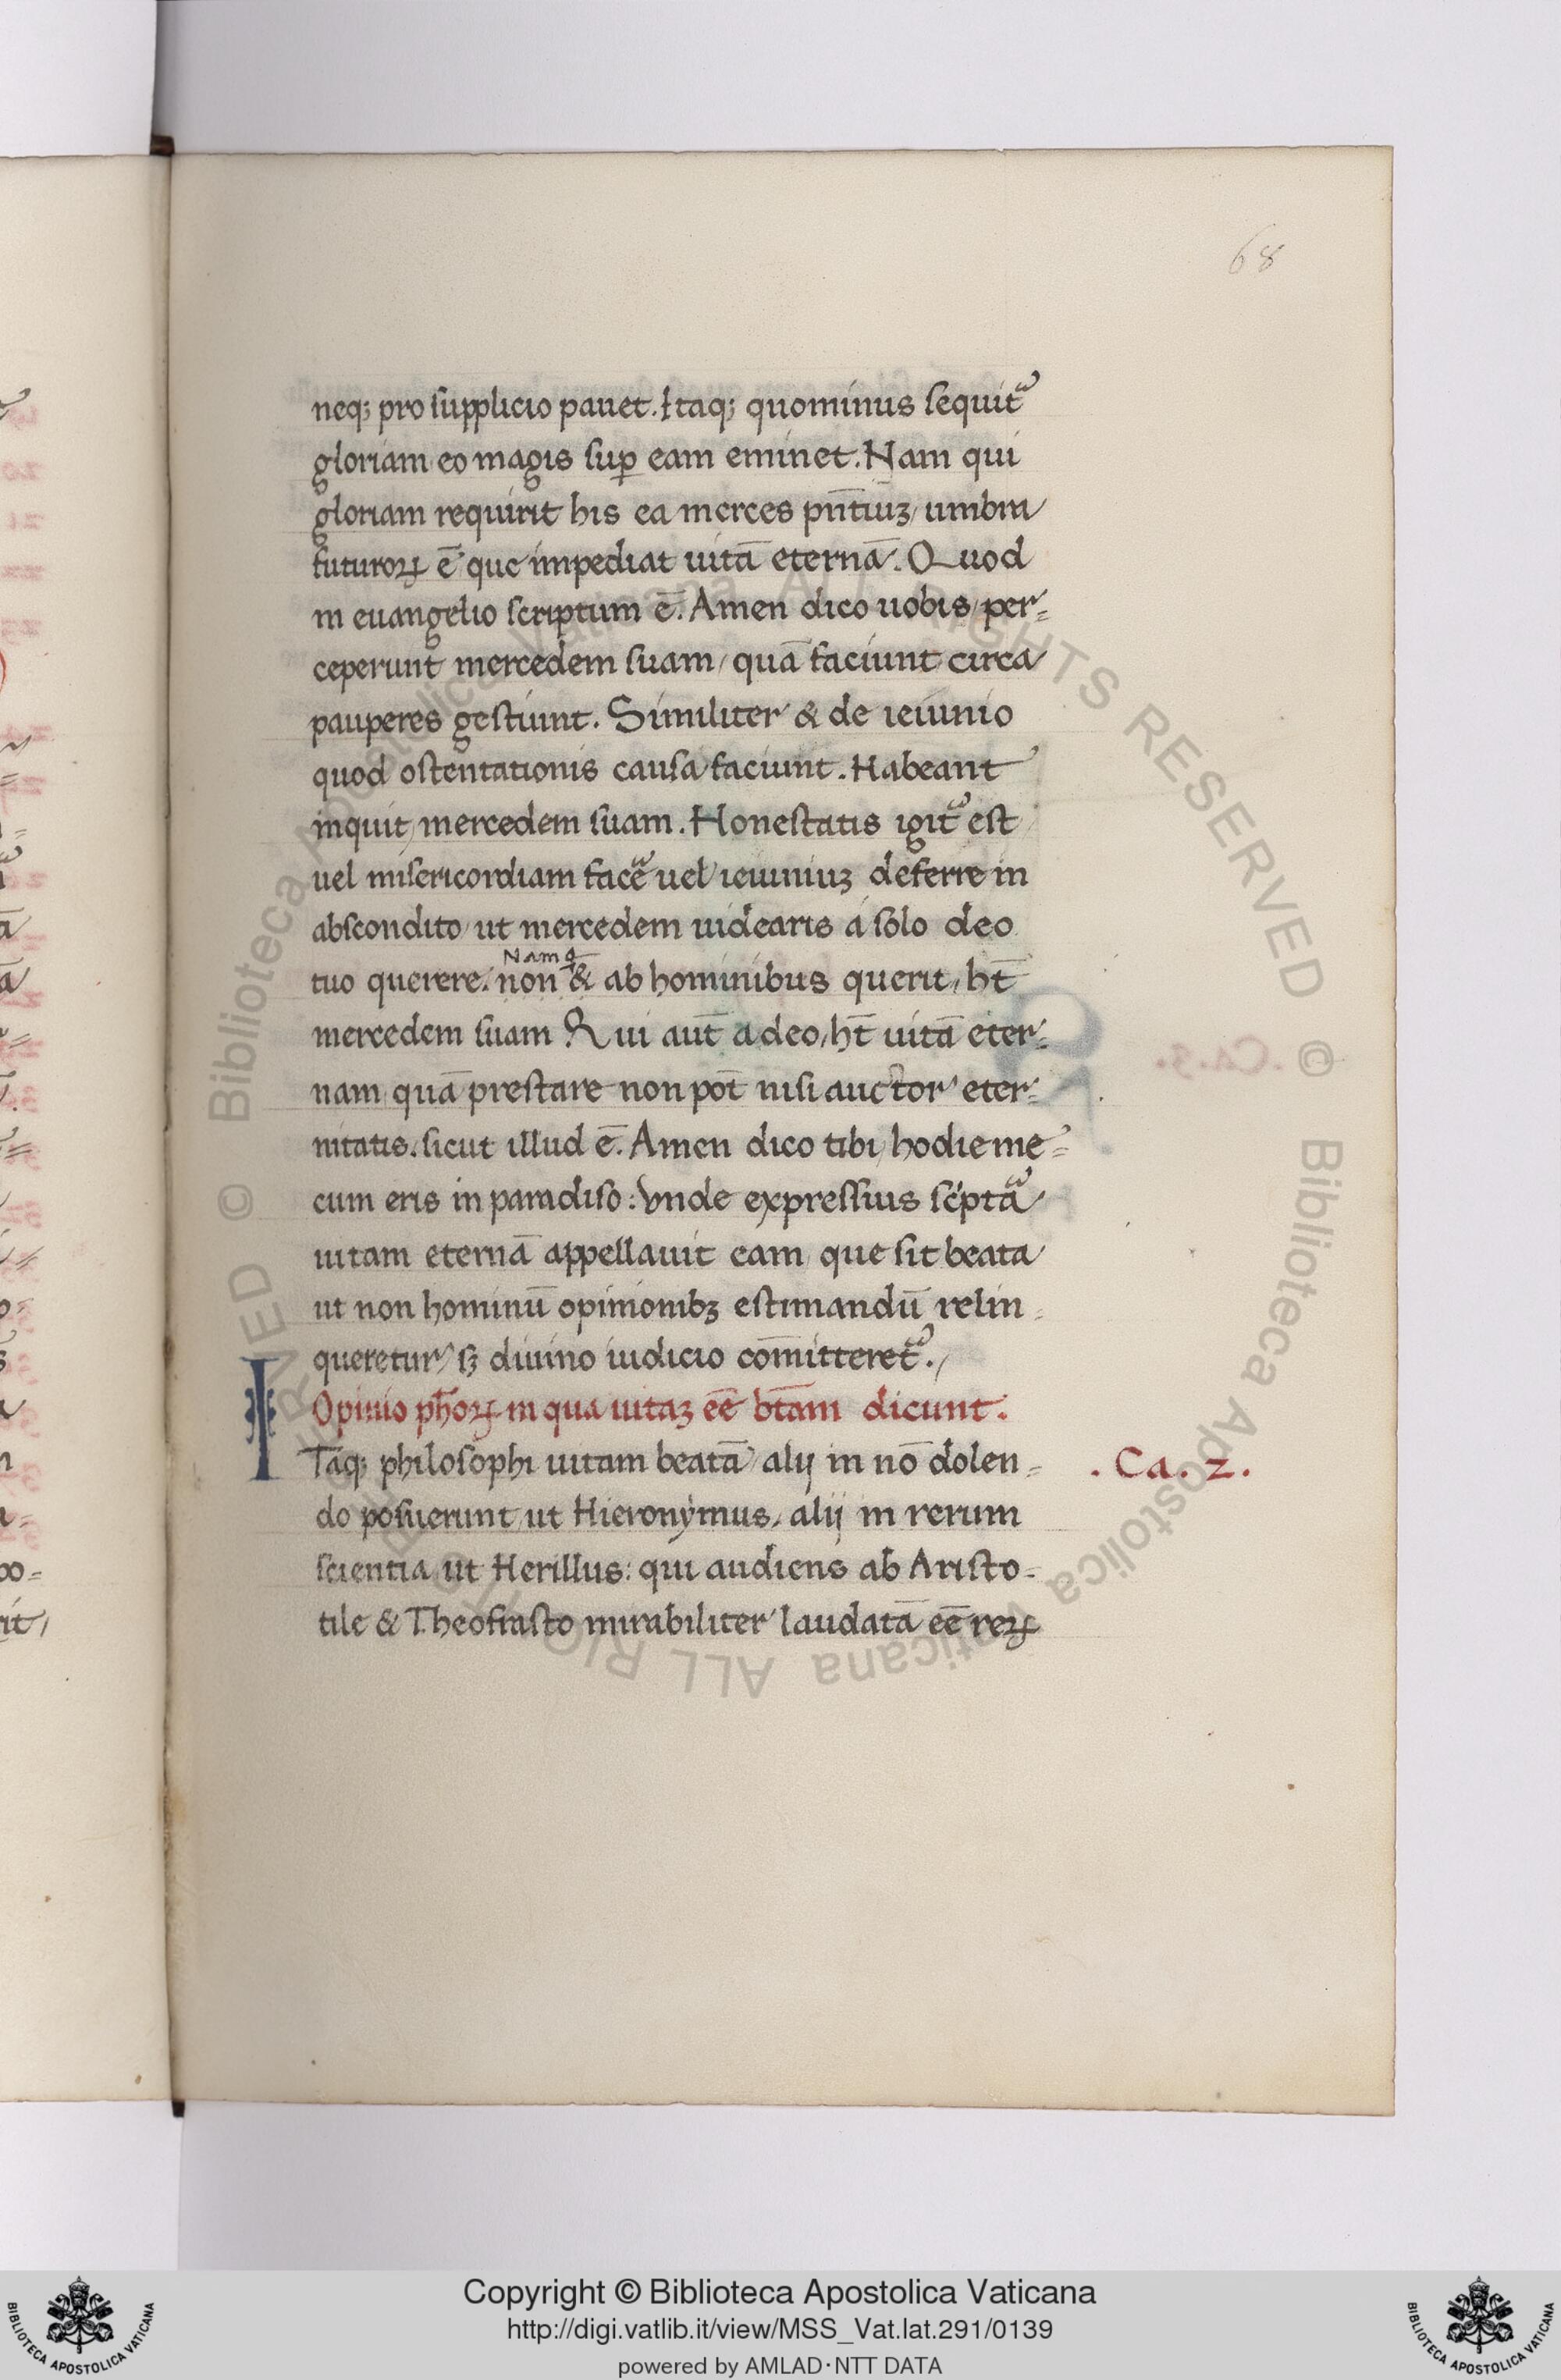 68
neq; pro supplicio pauet. Itaq; quominus sequit᷑
gloriam eo magis sup̱ eam eminet. Nam qui
gloriam requirit his ea merces pn̄tiuꝫ, umbra
futuroꝝ ē que impediat uitā eternā. Quod
in euangelio scriptum ē. Amen dico uobis, per=
ceperunt mercedem suam, quā faciunt circa
pauperes gestiunt. Similiter & de ieiunio
quod ostentationis causa faciunt. Habeant
inquit, mercedem suam. Honestatis igit᷑ est
uel misericordiam face᷑ uel ieiuniuꝫ deferre in
abscondito ut mercedem uidearis a solo deo
Namq
tuo querere. non & ab hominibus querit, ht̄
mercedem suam Qui aut̄ a deo, ht̄ uitā eter=
nam quā prestare non pōt nisi auctor eter=
nitatis. sicut illud ē. Amen dico tibi, hodie me=
cum eris in paradiso: Vnde expressius sćpta᷑
uitam eternā appellauit eam, que sit beata
ut non hominū opinionibꝫ estimandū relin=
queretur, sꝫ diuino iudicio com̄itteret᷑.,
Opinio ph̄oꝝ in qua uitaꝫ eē bt̄am dicunt.
ITaq; philosophi uitam beatā alij in nō dolen=
. Ca. 2.
do posuerunt, ut Hieronymus, alij in rerum
scientia, ut Herillus: qui audiens ab Aristo=
tile & Theofrasto mirabiliter laudatā eē reꝝ
Copyright © Biblioteca Apostolica Vaticana
http://digi.vatlib.it/view/MSS_Vat.lat.291/0139
powered by AMLAD·NTT DATA
BIBLIOTECA APOSTOLICA VATICANA
BIBLIOTECA APOSTOLICA VATICANA
© Biblioteca Apostolica Vaticana ALL RIGHTS RESERVED © Biblioteca Apostolica Vaticana ALL RIGHTS RESERVED